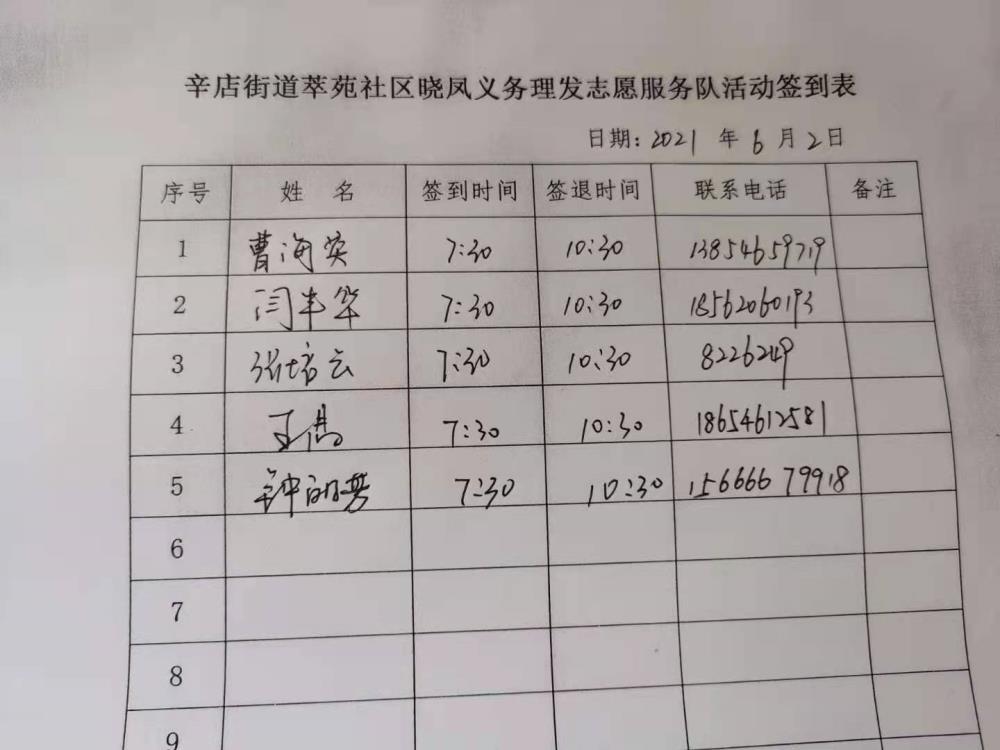 辛店街道萃苑社区晓凤义务理发志愿服务队活动签到表
日期:2021 年 6 月 2 日
序号 姓 名 签到时间 签退时间 联系电话 备注
1 曹海英 7:30 10:30 13854659719
2 闫丰华 7:30 10:30 18562060193
3 张培云 7:30 10:30 8226249
4 王 7:30 10:30 18654612581
5 钟 7:30 10:30 156666 79918
6
7
8
9